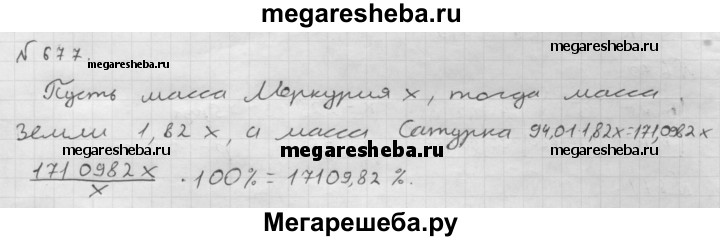 megaresheba.ru
№ 677.
megaresheba.ru
Пусть масса Меркурия x, тогда масса
Земли 1,82 x, а масса Сатурка 94,01 1,82x=171,0982 x
megaresheba.ru megaresheba.ru megaresheba.ru
1710982 x / x · 100% = 17109,82 %.
Мегарешеба.ру